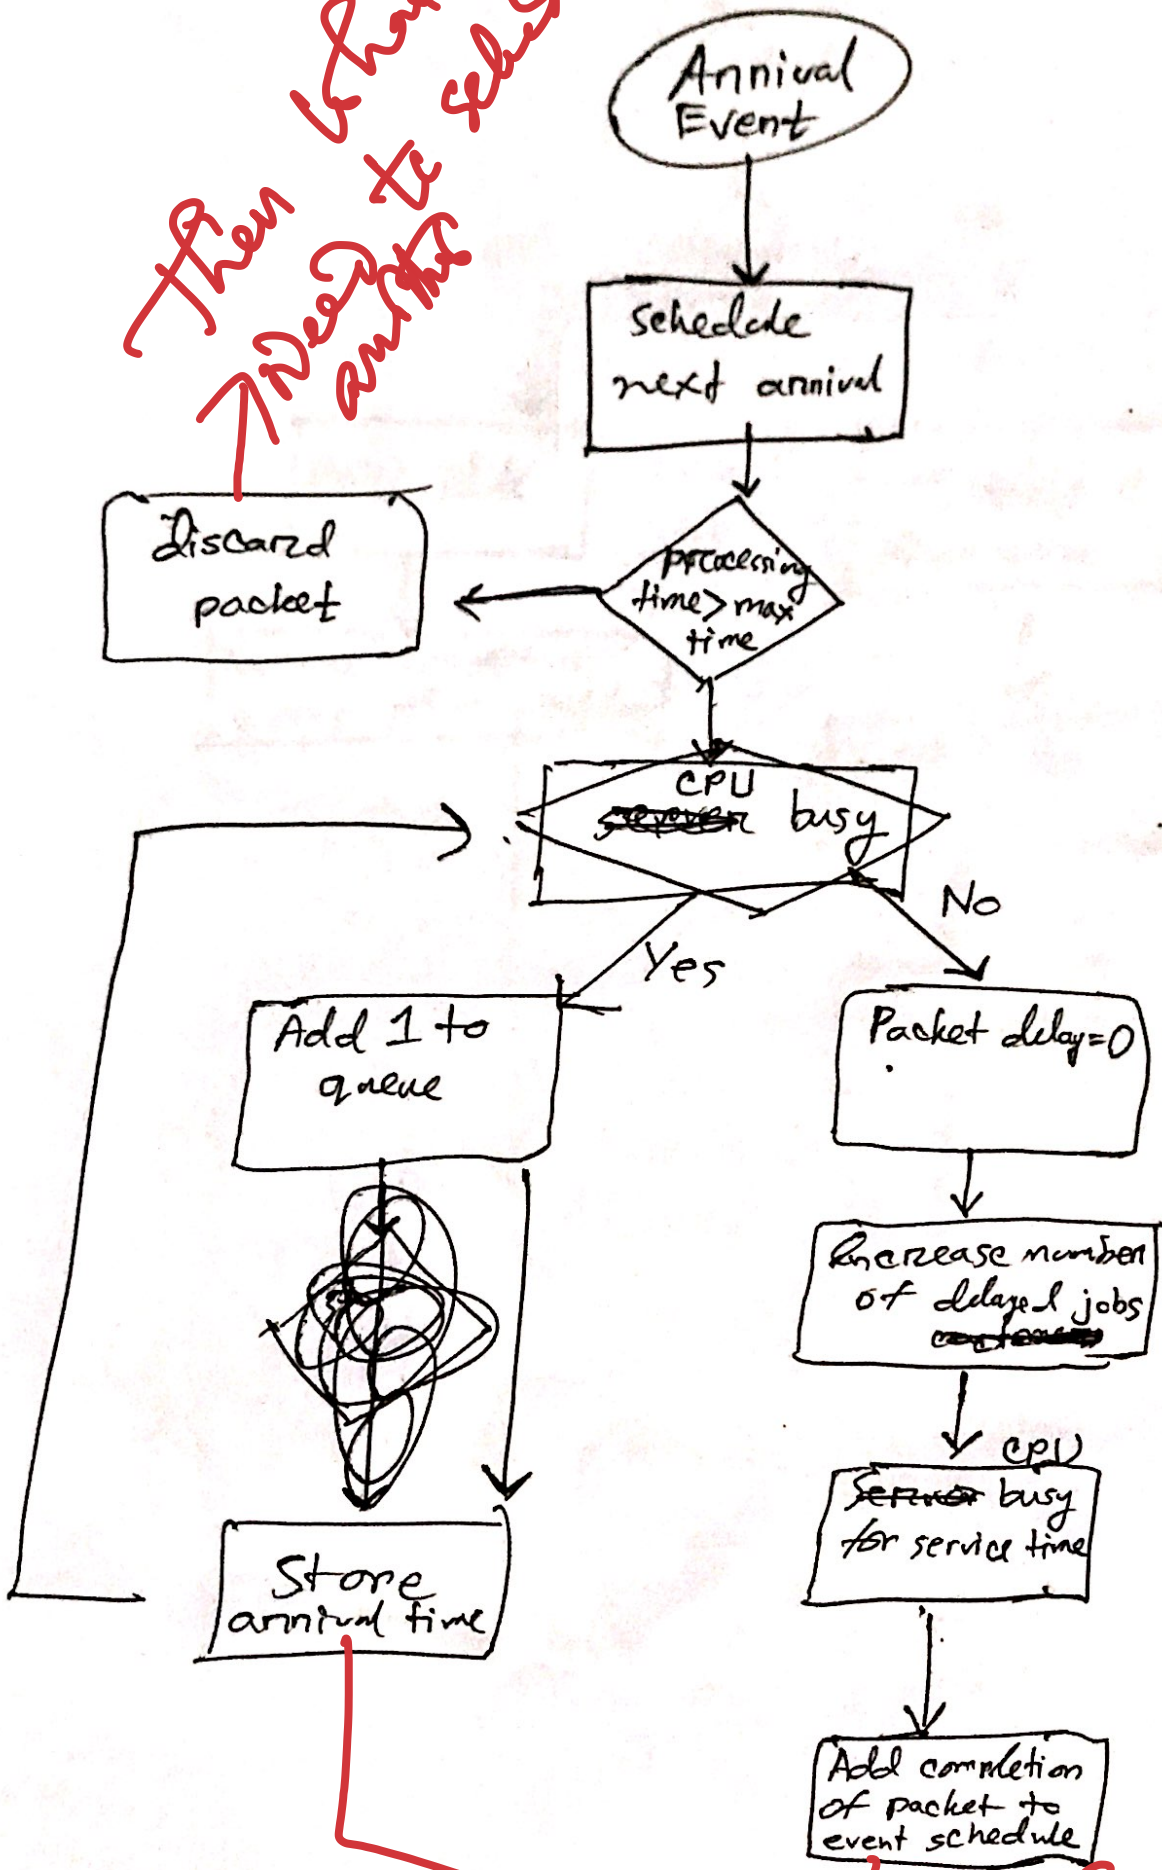 Then what
Need to
Arrival
Event
schedule
next arrival
discard
packet
processing
time > max
time
CPU
server busy
No
Yes
Add 1 to
queue
Packet delay=0
Increase number
of delayed jobs
CPU
Server busy
for service time
Store
arrival time
Add completion
of packet to
event schedule